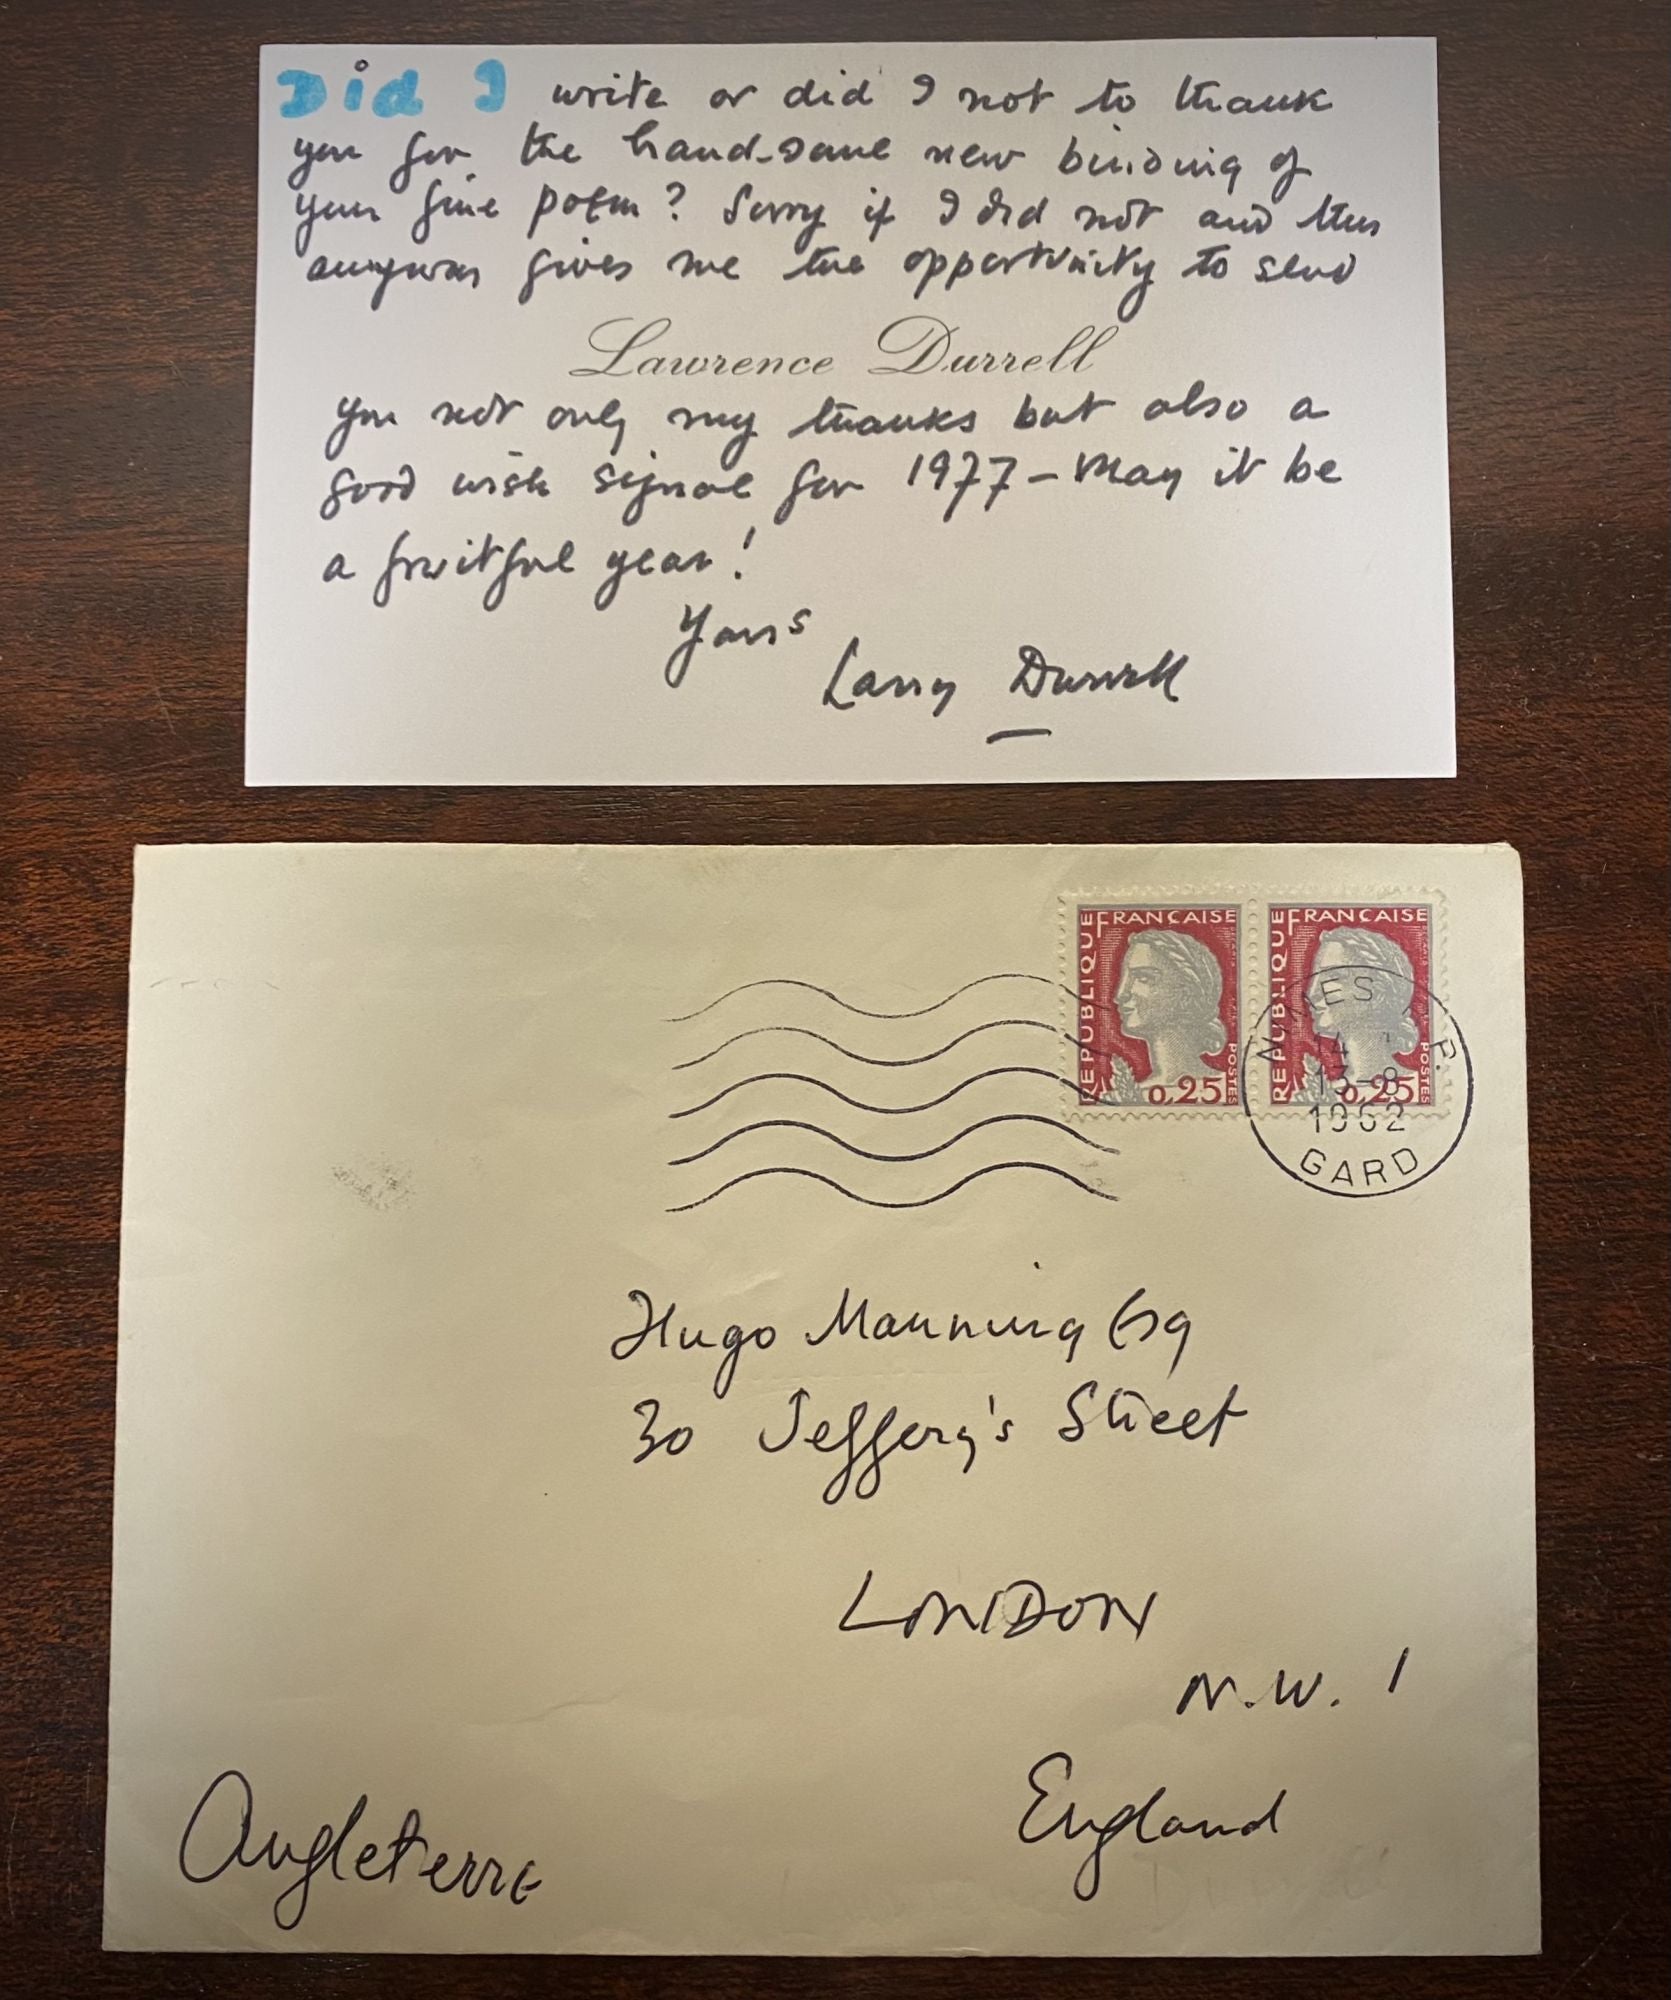 Did I write or did I not to thank
you for the hand-some new binding of
your fine poem? Sorry if I did not and this
anyway gives me the opportunity to send
Lawrence Durrell
you not only my thanks but also a
good wish signal for 1977 - May it be
a fruitful year!
Yours
Larry Durrell
REPUBLIQUE FRANÇAISE
POSTES
0,25
REPUBLIQUE FRANÇAISE
POSTES
0,25
NIMES R.P.
13-8
1962
GARD
Hugo Manning Esq
30 Jeffery's Street
LONDON
N.W. 1
England
Angleterre